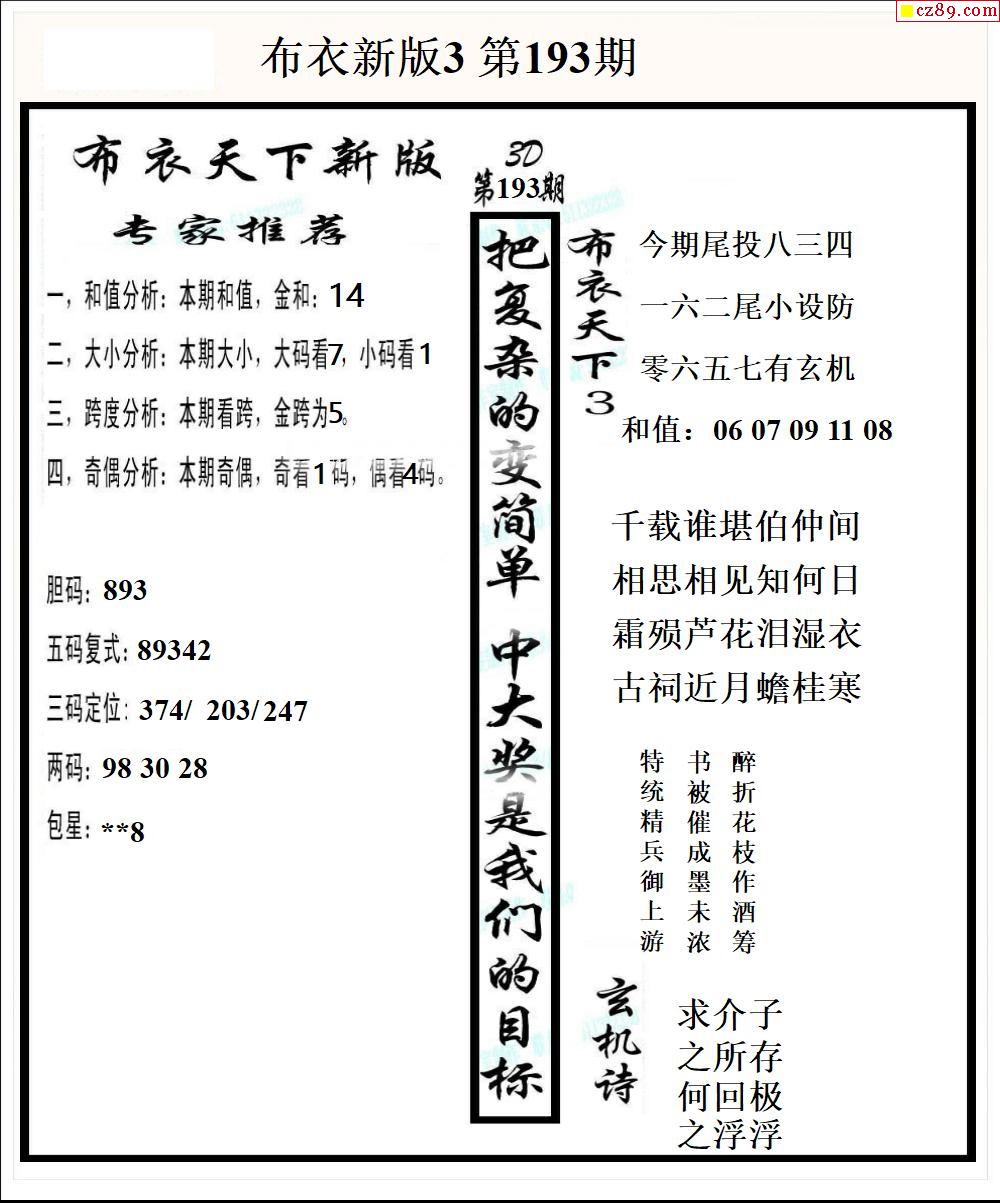 cz89.com
布衣新版3 第193期
布衣天下新版
专家推荐
一，和值分析：本期和值，金和：14
二，大小分析：本期大小，大码看7，小码看1
三，跨度分析：本期看跨，金跨为5。
四，奇偶分析：本期奇偶，奇看1码，偶看4码。
胆码：893
五码复式：89342
三码定位：374/ 203/247
两码：98 30 28
包星：**8
3D
第193期
把复杂的变简单 中大奖是我们的目标
布衣天下3
今期尾投八三四
一六二尾小设防
零六五七有玄机
和值：06 07 09 11 08
千载谁堪伯仲间
相思相见知何日
霜殒芦花泪湿衣
古祠近月蟾桂寒
醉折花枝作酒筹
书被催成墨未浓
特统精兵御上游
玄机诗
求介子
之所存
何回极
之浮浮